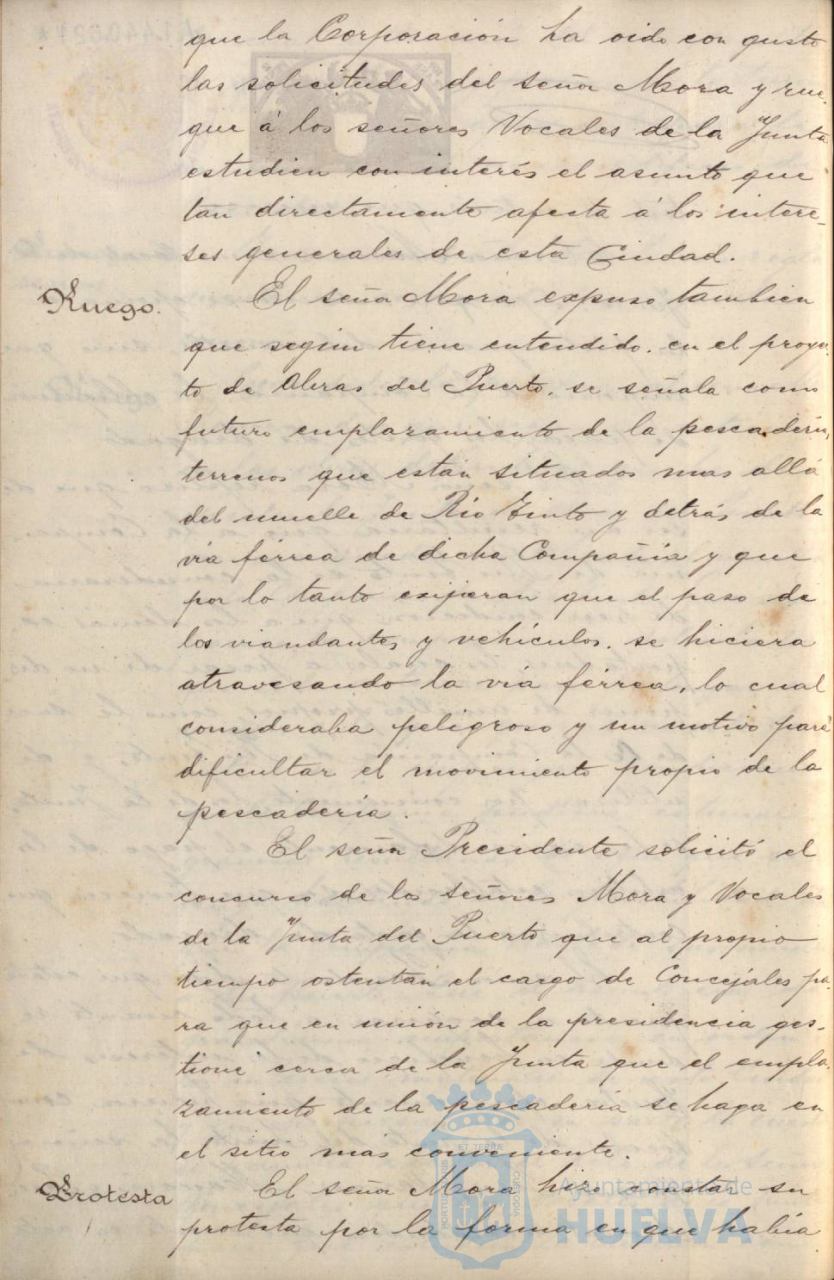 que la Corporación ha oido con gusto
las solicitudes del señor Mora y rue-
que á los señores Vocales de la Junta
estudien con interés el asunto que
tan directamente afecta á los intere-
ses generales de esta Ciudad.
Ruego.
El señor Mora expuso tambien
que segun tiene entendido, en el proyec-
to de Obras del Puerto, se señala como
futuro emplazamiento de la pescaderia,
terrenos que están situados mas allá
del muelle de Rio Tinto y detrás de la
via férrea de dicha Compañia y que
por lo tanto exijieran que el paso de
los viandantes y vehículos, se hiciera
atravesando la via férrea, lo cual
consideraba peligroso y un motivo para
dificultar el movimiento propio de la
pescadería.
El señor Presidente solicitó el
concurso de los señores Mora y Vocales
de la Junta del Puerto que al propio
tiempo ostentan el cargo de Concejales pa-
ra que en unión de la presidencia ges-
tione cerca de la Junta que el empla-
zamiento de la pescaderia se haga en
el sitio mas conveniente.
Protesta
El señor Mora hizo constar su
protesta por la forma en que había
Ayuntamiento de
HUELVA